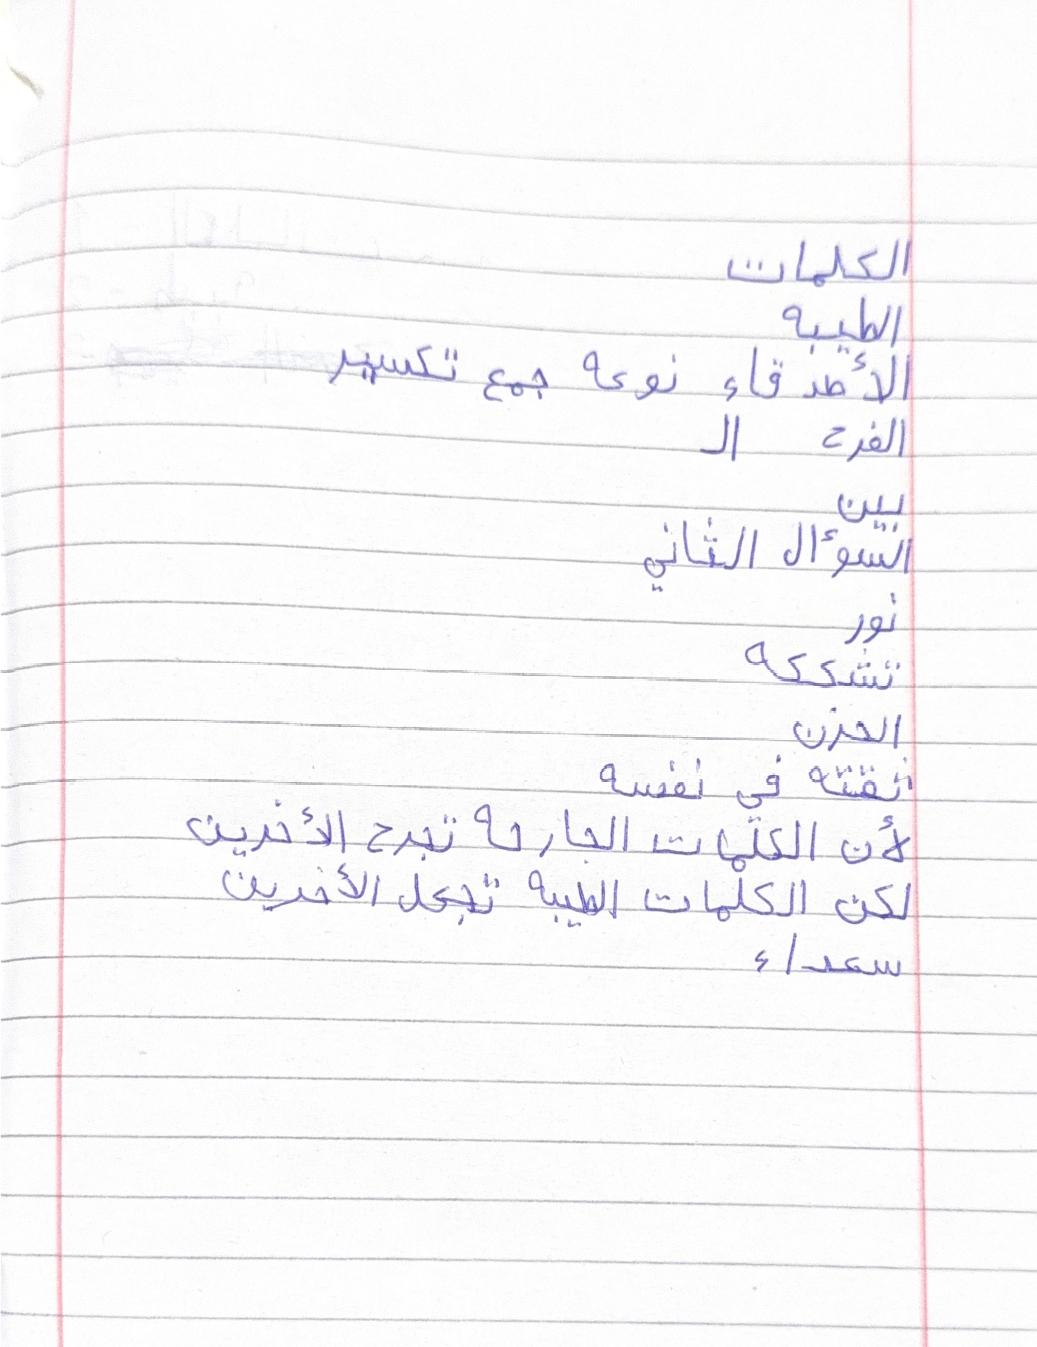 الكلمات
الطيبه
الأصدقاء نوعه جمع تكسير
الفرح ال
بين
السوأل الثاني
نور
تشككه
الحزن
ثقتته في نفسه
لأن الكلمات الجارحة تجرح الأخرين
لكن الكلمات الطيبه تجعل الأخرين
سعداء